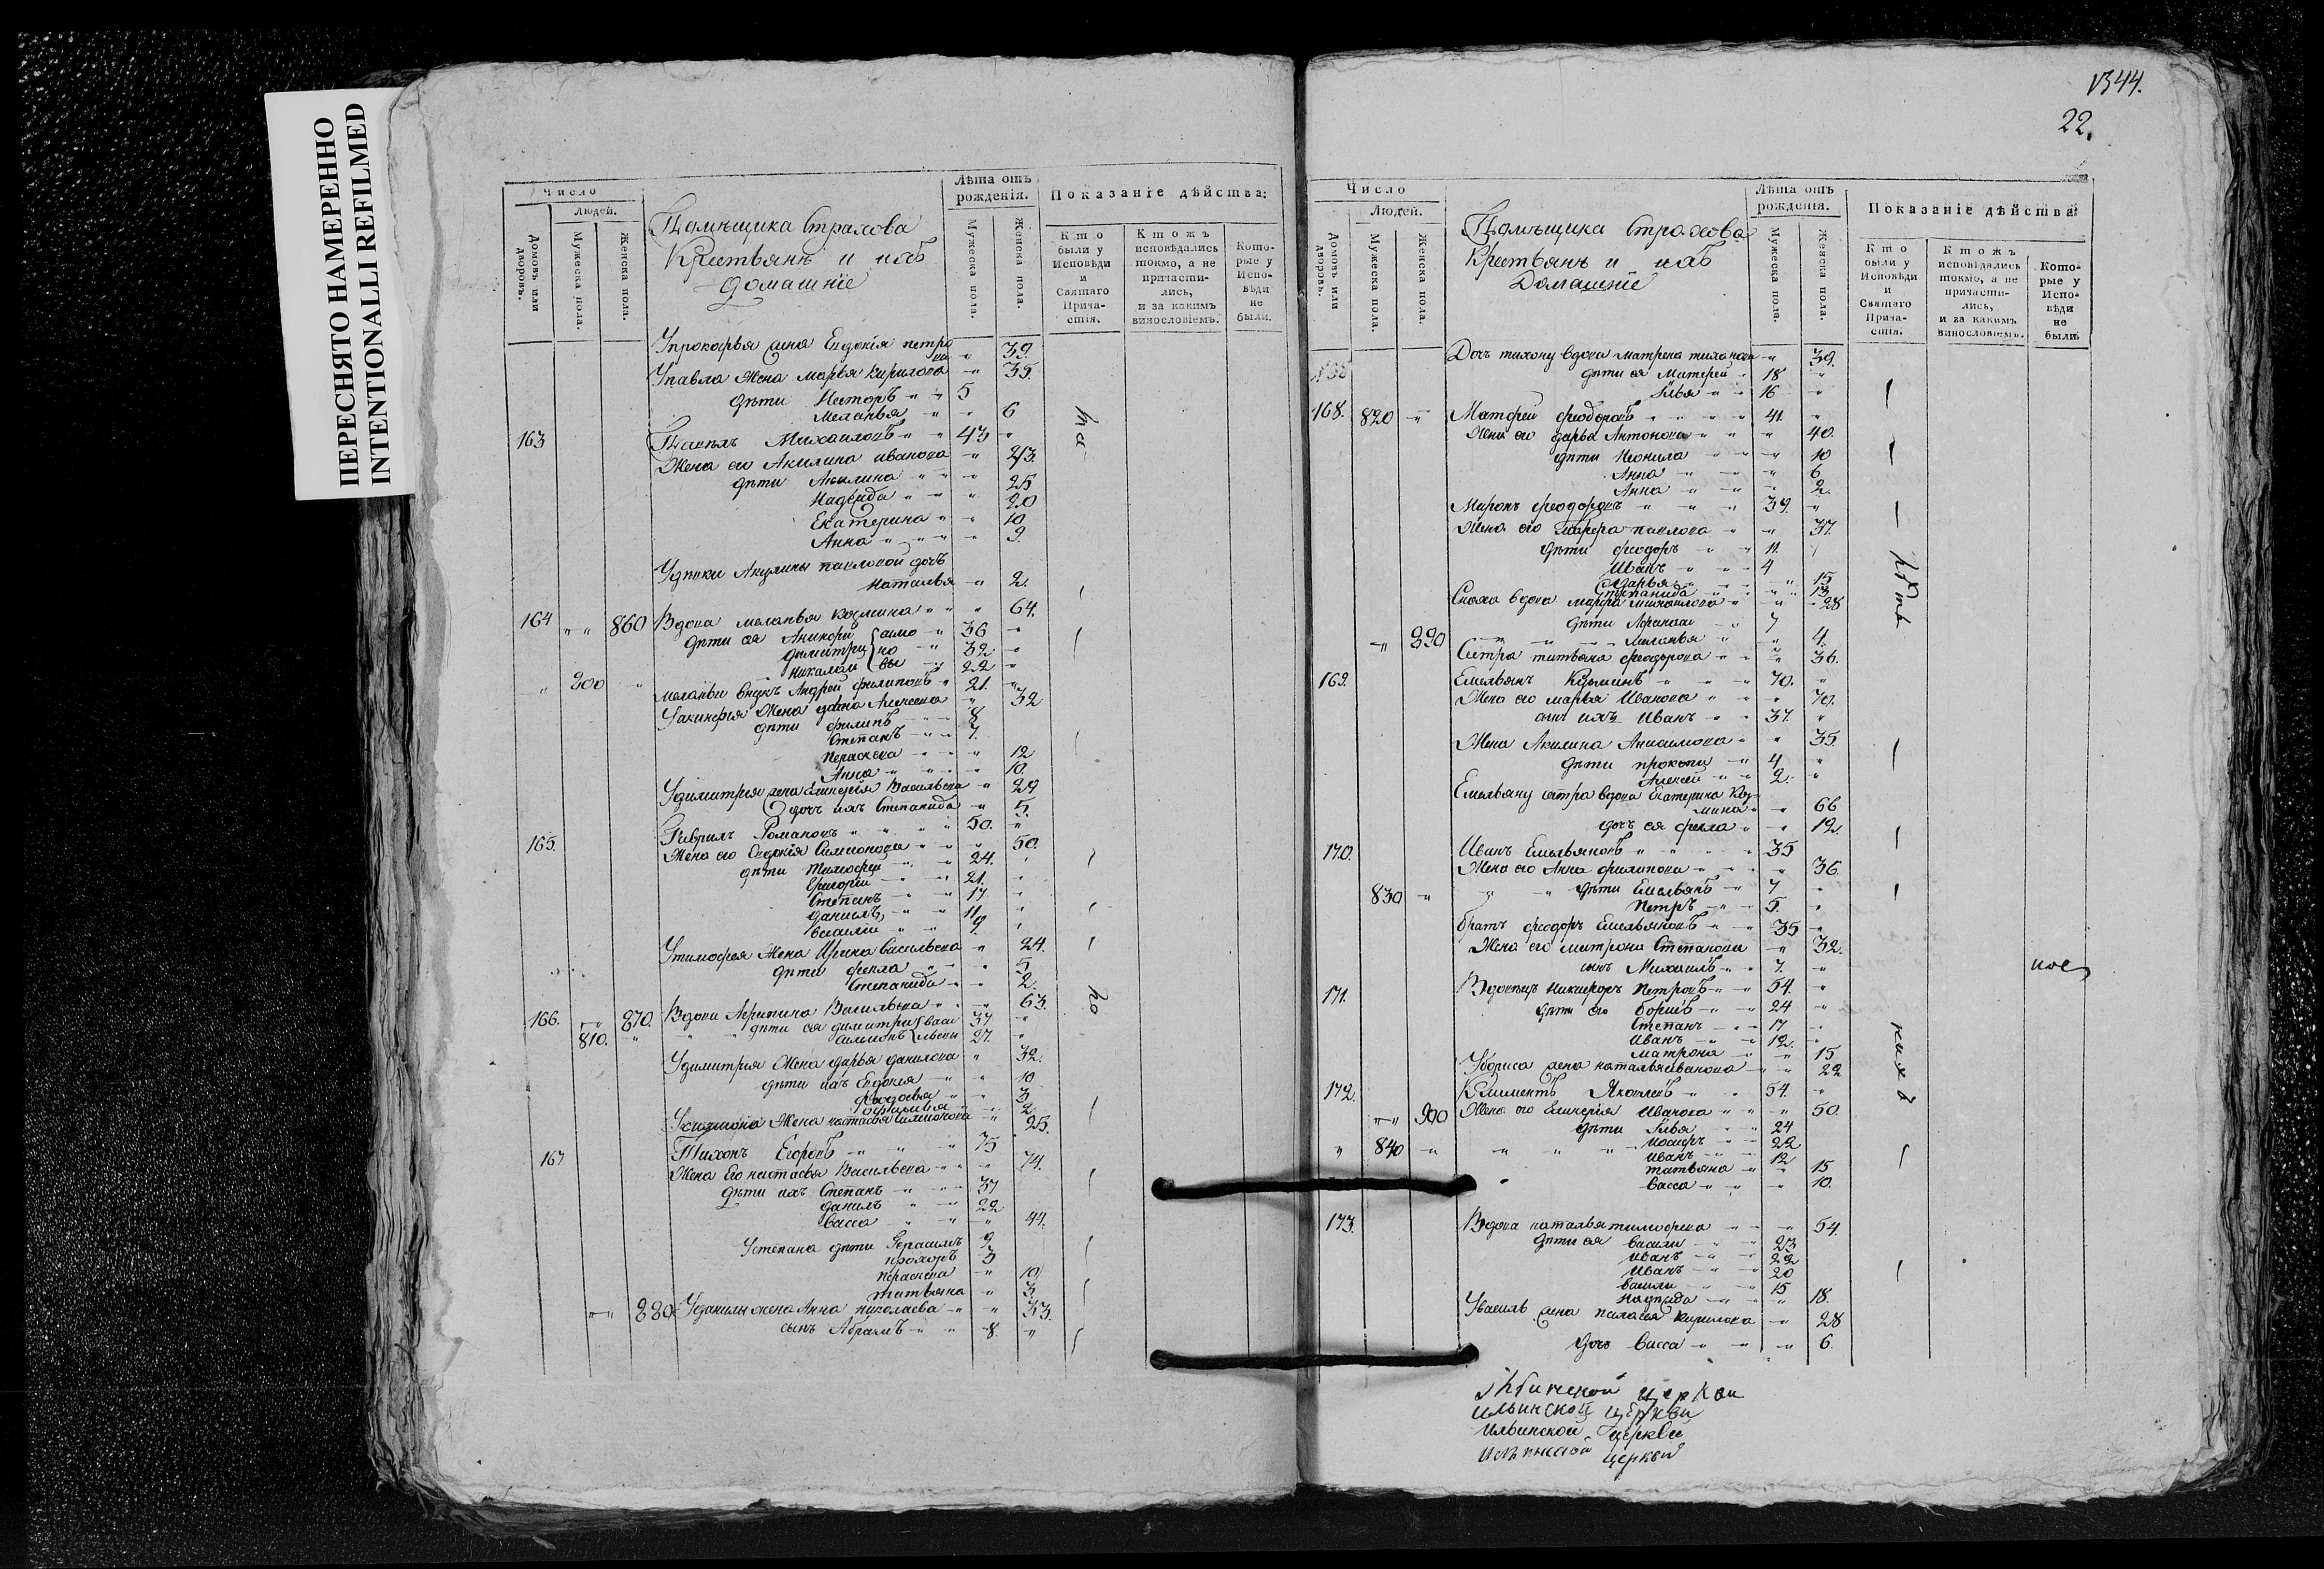 ПЕРЕСНЯТО НАМЕРЕННО
INTENTIONALLI REFILMED
Число
Людей.
Домовъ или дворовъ.
Мужеска пола.
Женска пола.
Помѣщика Страхова
Крестьянъ и ихъ
домашніе
Лѣта отъ рожденія.
Мужеска пола.
Женска пола.
Показаніе дѣйства:
Кто были у Исповѣди и Святаго Причастія.
Ктожъ исповѣдались токмо, а не причастились, и за какимъ винословіемъ.
Которые у Исповѣди не были.
Упрокофья жена Евдокія петрова 39.
Упавла жена марья Кирилова 35.
дѣти Несторъ 5
Меланья 6
163 Михаиловъ 43
Жена его Акилина иванова
дѣти Акилина 25
20
Екатерина 10
Анна
Акулины павловой дочь
Наталья 2.
164 860 Вдова меланья козмина 64.
дѣти ея 36
димитрій 32
Николай 22
внукъ Андрей филиповъ 21.
жена Алексеева 32
дѣти филипъ 8
Степанъ 7.
12
Анна 10.
Удимитрія жена Васильева
дочь ихъ Степанида 5.
165. Гаврилъ Романовъ 50.
Жена его Евдокія Симионова 50.
дѣти Тимофей 24.
Григорій 21.
Степанъ 17
данилъ 11
василій
Утимофея жена Ирина васильева 24.
дѣти фекла 5
Степанида 2.
166. 870. Вдова Васильева 63.
810. дѣти ея димитрій 37
27.
Удимитрія Жена дарья данилова 32.
дѣти ихъ Евдокія 10
3
2.
Жена настасья симионова 25.
167 Тихонъ Егоровъ 75
Жена Его настасья Васильева 74.
дѣти ихъ Степанъ 37
данилъ 22
васса 44.
Устепана дѣти Герасимъ 9
прохоръ 3
10
татьяна 3
880 Уданилы жена Анна николаева 33.
сынъ Абрамъ 8.
1344.
22.
Число
Людей.
Домовъ или дворовъ.
Мужеска пола.
Женска пола.
Помѣщика Страхова
Крестьянъ и ихъ
Домашніе
Лѣта отъ рожденія.
Мужеска пола.
Женска пола.
Показаніе дѣйства
Кто были у Исповѣди и Святаго Причастія.
Ктожъ исповѣдались токмо, а не причастились, и за какимъ винословіемъ.
Которые у Исповѣди не были.
Дочь тихону вдова матрена тихонова 39.
дѣти ея 18
Илья 16
168. 820 Матфей феодоровъ 41.
Жена его дарья Антонова 40.
дѣти Неонила 10
Анна 6
Анна 2.
Миронъ феодоровъ 39.
Жена его павлова 37.
дѣти феодоръ 11.
Иванъ 4
дарья 15
Степанида 13
Сноха вдова марфа михаилова 28
дѣти 7
890 Меланья 4.
Сестра татьяна феодорова 36.
169. Емельянъ Кузминъ 70.
Жена его марья Иванова 70.
сынъ ихъ Иванъ 37.
Жена Акилина Анисимова 35
дѣти прокопій 4
Алексей 2.
Емельяну сестра вдова Екатерина Козмина 66
дочь ея фекла 12.
170. Иванъ Емельяновъ 35
Жена его Анна филипова 36.
830 дѣти Емельянъ 7
Петръ 5.
братъ феодоръ Емельяновъ 35
Жена его матрона Степанова 32.
сынъ Михаилъ 7.
171. Вдовецъ Никифоръ Петровъ 54.
дѣти его борисъ 24
Степанъ 17
Иванъ 12
матрона 15
Убориса жена наталья иванова 22
172. Климентъ Яковлевъ 54.
900 Жена его Иванова 50.
дѣти Илья 24
840 иосифъ 22
иванъ 12
татьяна 15
васса 10.
173. Вдова наталья тимофеева 54.
дѣти ея василій 23
иванъ 22
иванъ 20
василій 15
18.
жена Кирилова 28
дочь васса 6.
церкви
ильинской церкви
ильинской церкви
церкви